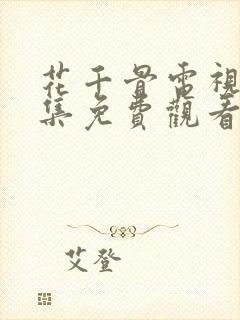 花千骨電視
集免費觀看
艾登